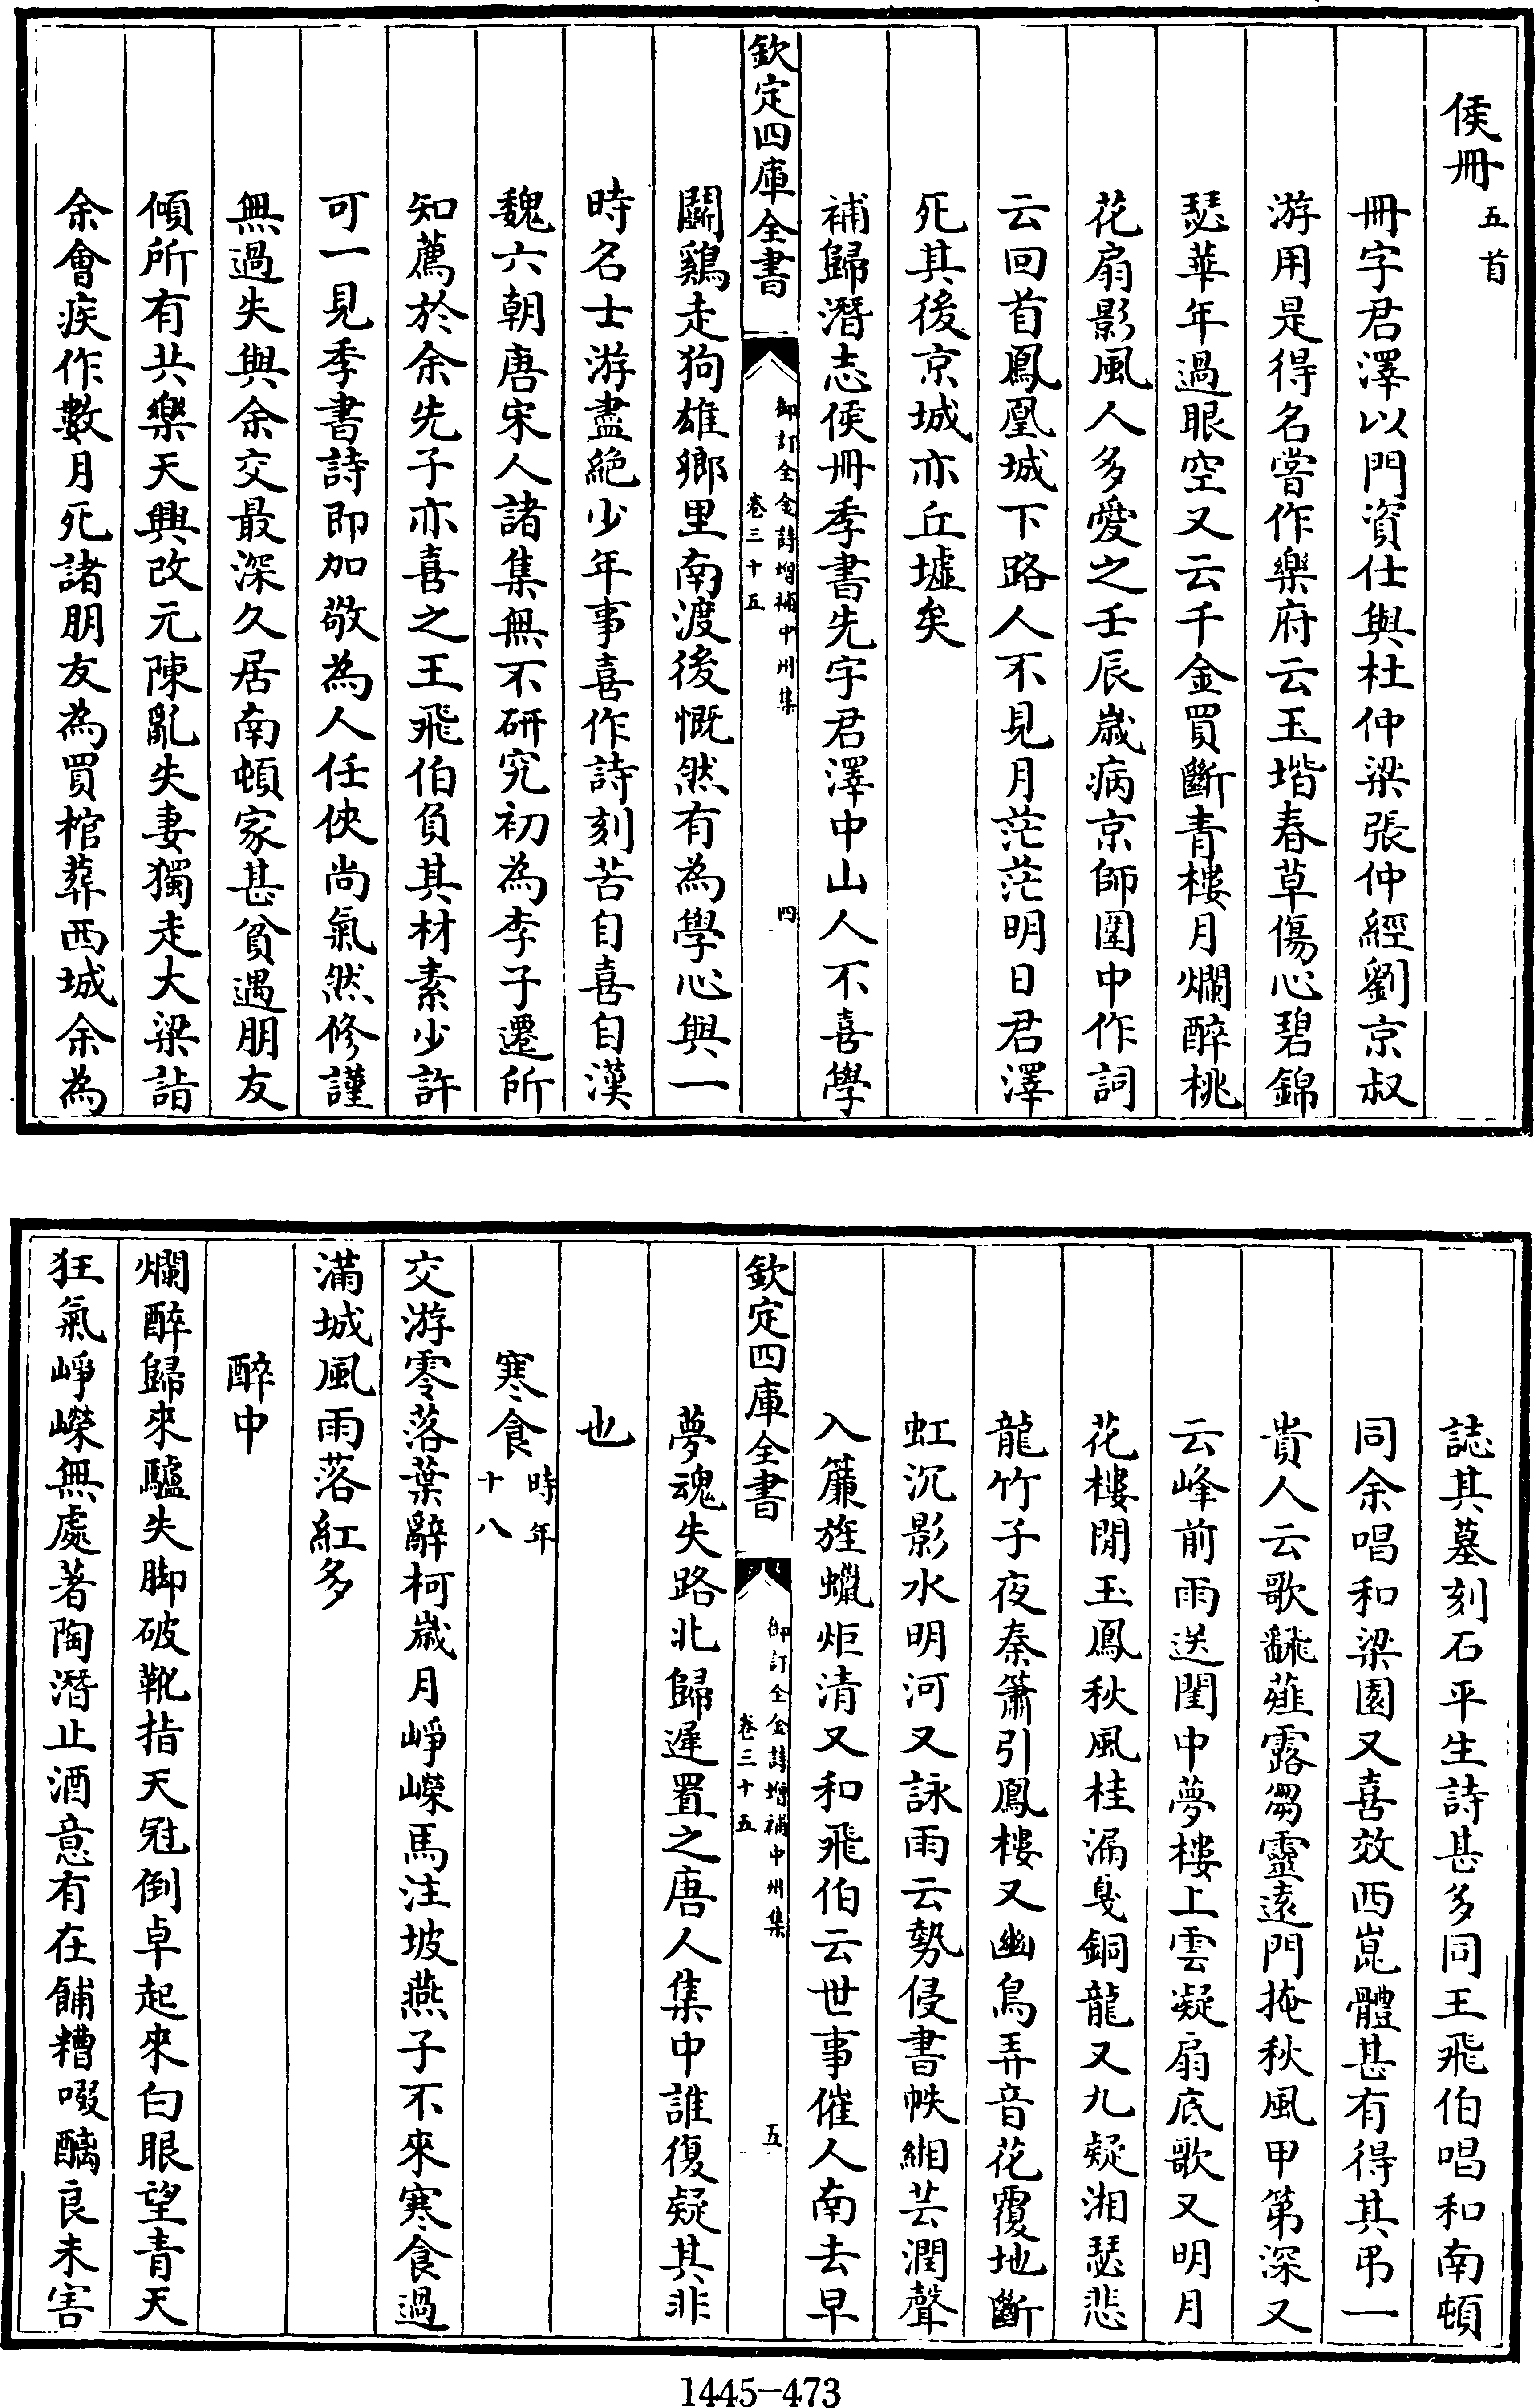 侯冊五首
冊字君澤以門資仕與杜仲梁張仲經劉京叔
游用是得名嘗作樂府云玉堦春草傷心碧錦
瑟華年過眼空又云千金買斷青樓月爛醉桃
花扇影風人多愛之壬辰歲病京師圍中作詞
云回首鳳凰城下路人不見月茫茫明日君澤
死其後京城亦丘墟矣
補歸潛志侯冊季書先字君澤中山人不喜學
欽定四庫全書
御訂全金詩增補中州集
卷三十五
四
鬭鷄走狗雄鄉里南渡後慨然有為學心與一
時名士游盡絶少年事喜作詩刻苦自喜自漢
魏六朝唐宋人諸集無不研究初為李子遷所
知薦於余先子亦喜之王飛伯負其材素少許
可一見季書詩即加敬為人任俠尚氣然修謹
無過失與余交最深久居南頓家甚貧遇朋友
傾所有共樂天興改元陳亂失妻獨走大梁詣
余會疾作數月死諸朋友為買棺葬西城余為
誌其墓刻石平生詩甚多同王飛伯唱和南頓
同余唱和梁園又喜效西崑體甚有得其弔一
貴人云歌翻薤露芻靈遠門掩秋風甲第深又
云峰前雨送閨中夢樓上雲凝扇底歌又明月
花樓閒玉鳳秋風桂漏戛銅龍又九疑湘瑟悲
龍竹子夜秦簫引鳳樓又幽鳥弄音花覆地斷
虹沉影水明河又詠雨云勢侵書帙緗芸潤聲
入簾旌蠟炬清又和飛伯云世事催人南去早
欽定四庫全書
御訂全金詩增補中州集
卷三十五
五
夢魂失路北歸遲置之唐人集中誰復疑其非
也
寒食時年十八
交游零落葉辭柯歲月崢嶸馬注坡燕子不來寒食過
滿城風雨落紅多
醉中
爛醉歸來驢失脚破靴指天冠倒卓起來白眼望青天
狂氣崢嶸無處著陶潛止酒意有在餔糟啜醨良未害
1445-473